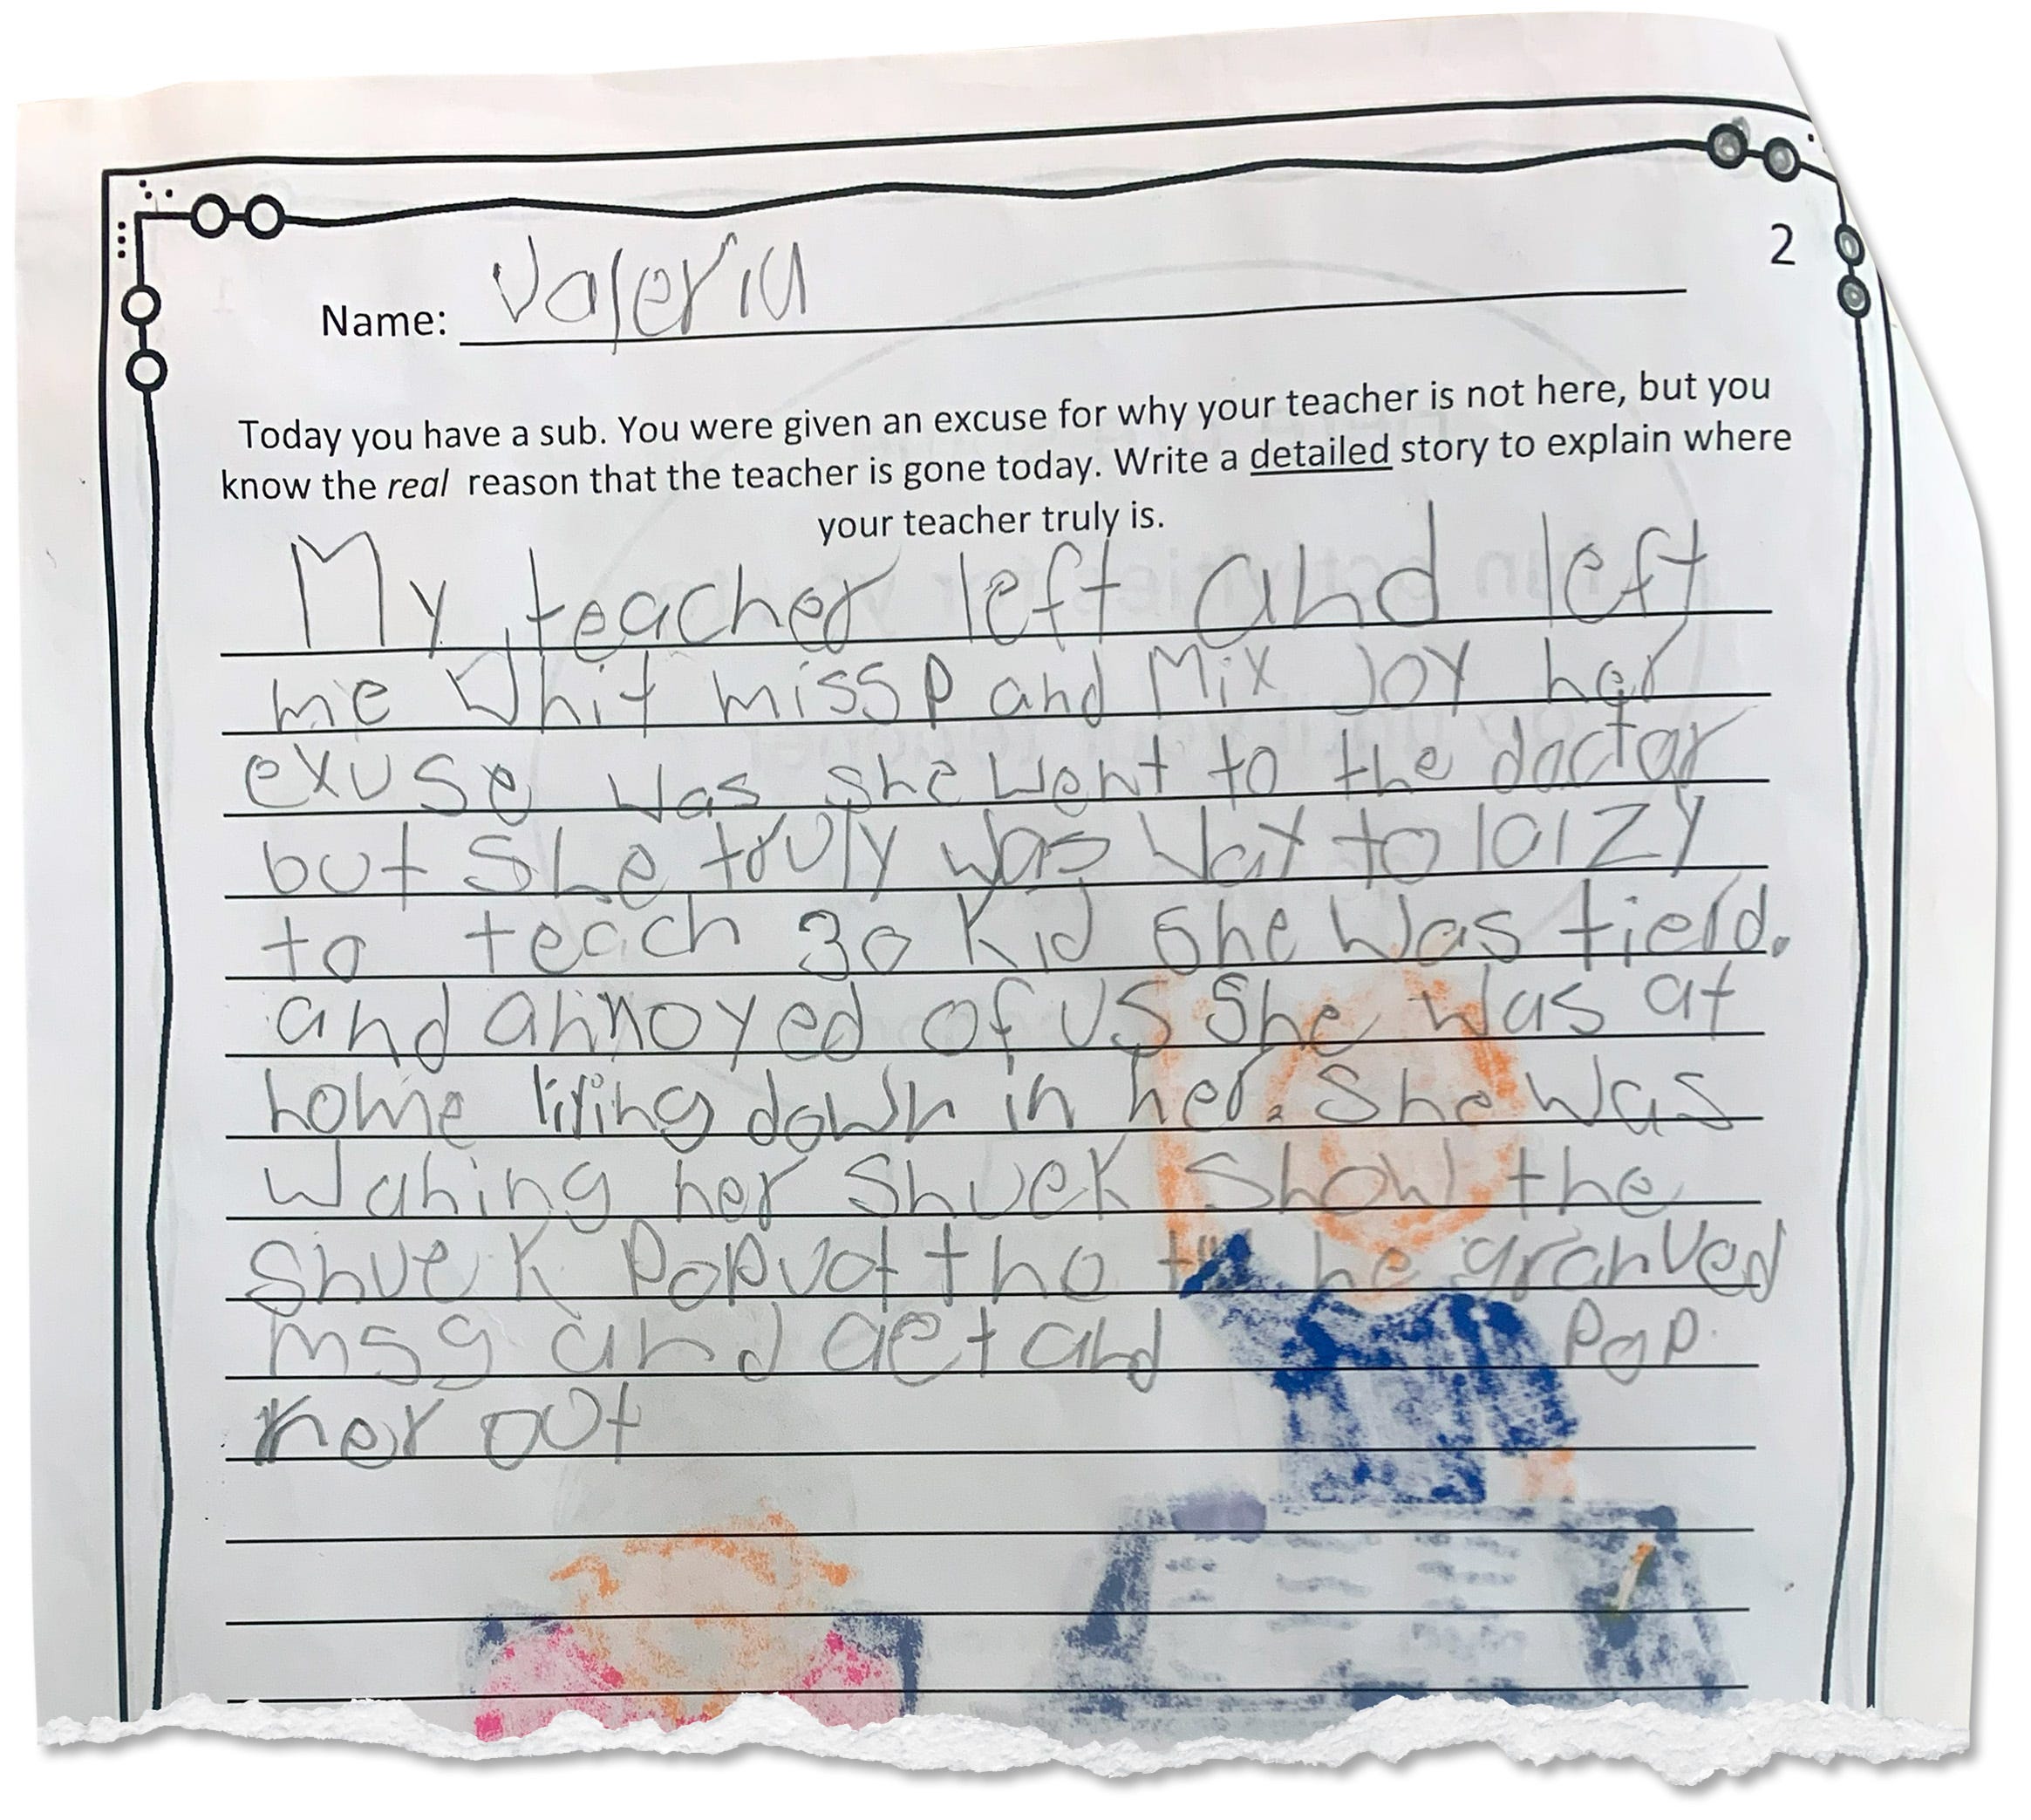 2
Name: Valeria
Today you have a sub. You were given an excuse for why your teacher is not here, but you
know the real reason that the teacher is gone today. Write a detailed story to explain where
your teacher truly is.
My teacher left and left
me Whit miss p and Mix Joy her
exuse was she went to the doctar
but She truly was Way to laizy
to teach 30 Kid She Was tield.
and annoyed of US She was at
home liying down in her. She was
Wahing her Shuek Show the
Shuek Popuot the he
msg and aet and Pop
her out